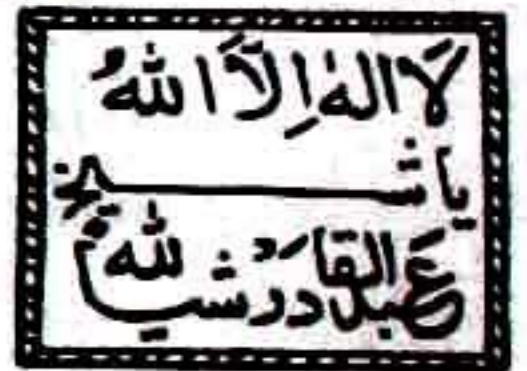 لَا اله اِلَّا اللهُ
يا شـــــيخ
عَبد القادر شيئا لله